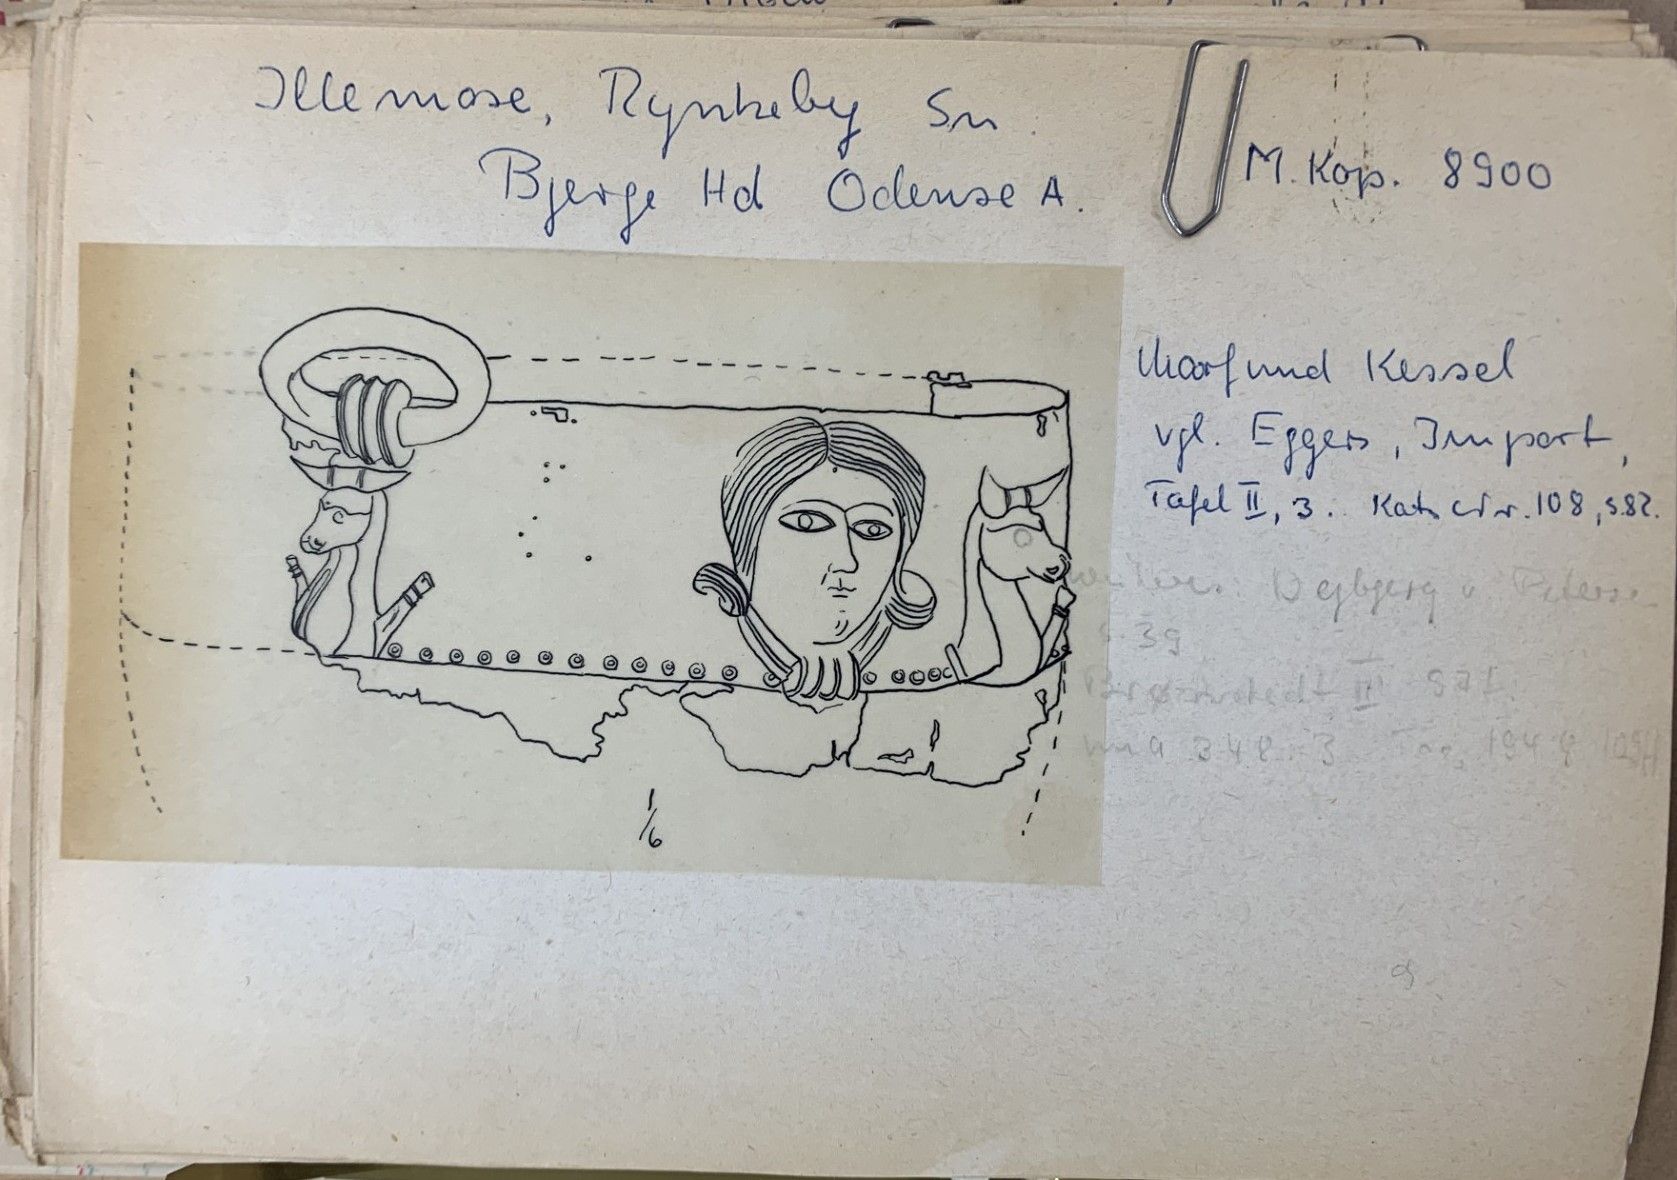 Illemose, Rynkeby Sn.
Bjerge Hd Odense A.
M. Kop. 8900
Moorfund Kessel
vgl. Eggers, Import,
Tafel II, 3. Kat. Nr. 108, S.82.
Dejbjerg
S. 39
Brøndstedt III
1/6